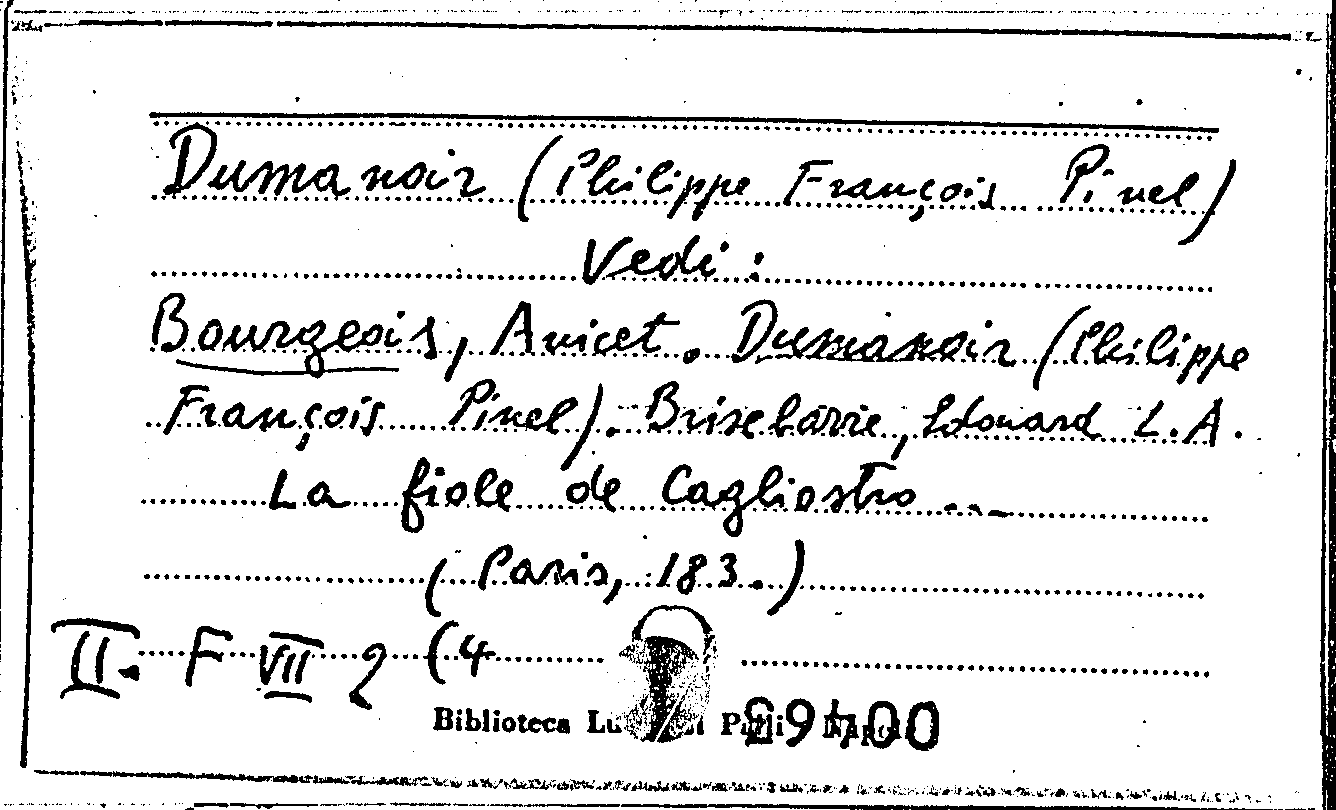 Dumanoir (Philippe François Pinel)
Vedi:
Bourgeois, Anicet. Dumanoir (Philippe
François Pinel). Brisebarre, Edouard L.A.
La fiole de Cagliostro...
(Paris, 183.)
II. F VII 2 (4
Biblioteca